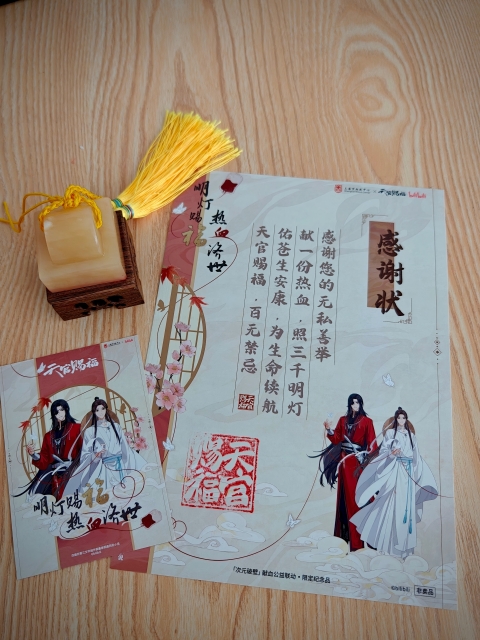 天官赐福
bilibili
感谢状
感谢您的无私善举
献一份热血·照三千明灯
佑苍生安康·为生命续航
天官赐福·百无禁忌
明灯赐福
热血济世
天官赐福
「次元破壁」献血公益联动·限定纪念品
bilibili
非卖品
天官赐福
明灯赐福
热血济世